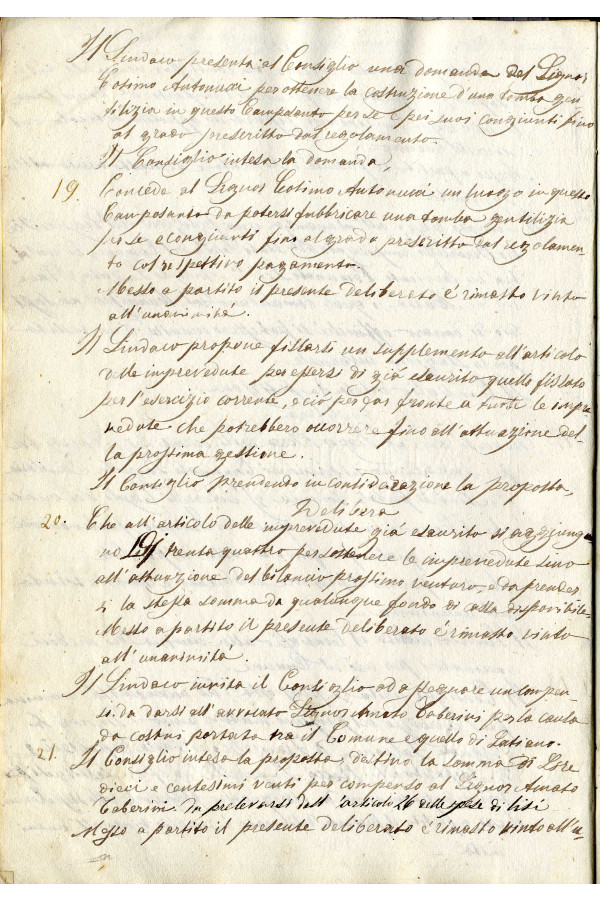 Il Sindaco presenta al Consiglio una domanda del Signor
Cosimo Antonucci per ottenere la costruzione d'una tomba gen
tilizia in questo Camposanto per se e pei suoi congiunti fino
al grado prescritto dal regolamento.
Il Consiglio intesa la domanda,
19. Concede al Signor Cosimo Antonucci un luogo in questo
Camposanto da potersi fabbricare una tomba gentilizia
per se e congiunti fino al grado prescritto dal regolamen-
to col rispettivo pagamento.
Messo a partito il presente deliberato é rimasto vinto
all'unanimità.
Il Sindaco propone fissarsi un supplemento all'articolo
delle imprevedute per essersi di già esaurito quello fissato
per l'esercizio corrente, e ciò per far fronte a tutte le impre
vedute che potrebbero occorrere fino all'attuazione del-
la prossima gestione.
Il Consiglio prendendo in considerazione la proposta,
Delibera
20. Che all'articolo delle imprevedute già esaurito si aggiunga
no trenta quattro per sostenere le imprevedute sino
all'attuazione del bilancio prossimo venturo, e da prender
si la stessa somma da qualunque fondo di cassa disponibile.
Messo a partito il presente deliberato é rimasto vinto
all'unanimità.
Il Sindaco invita il Consiglio ad assegnare un compen-
so da darsi all'avvocato Signor Amato Taberini per la causa
da costui portata tra il Comune e quello di Latiano.
21. Il Consiglio intesa la proposta, destina la somma di Lire
dieci e centesimi venti per compenso al Signor Amato
Taberini da prelevarsi dall'articolo 26 delle spese di liti
Messo a partito il presente deliberato é rimasto vinto all'u-